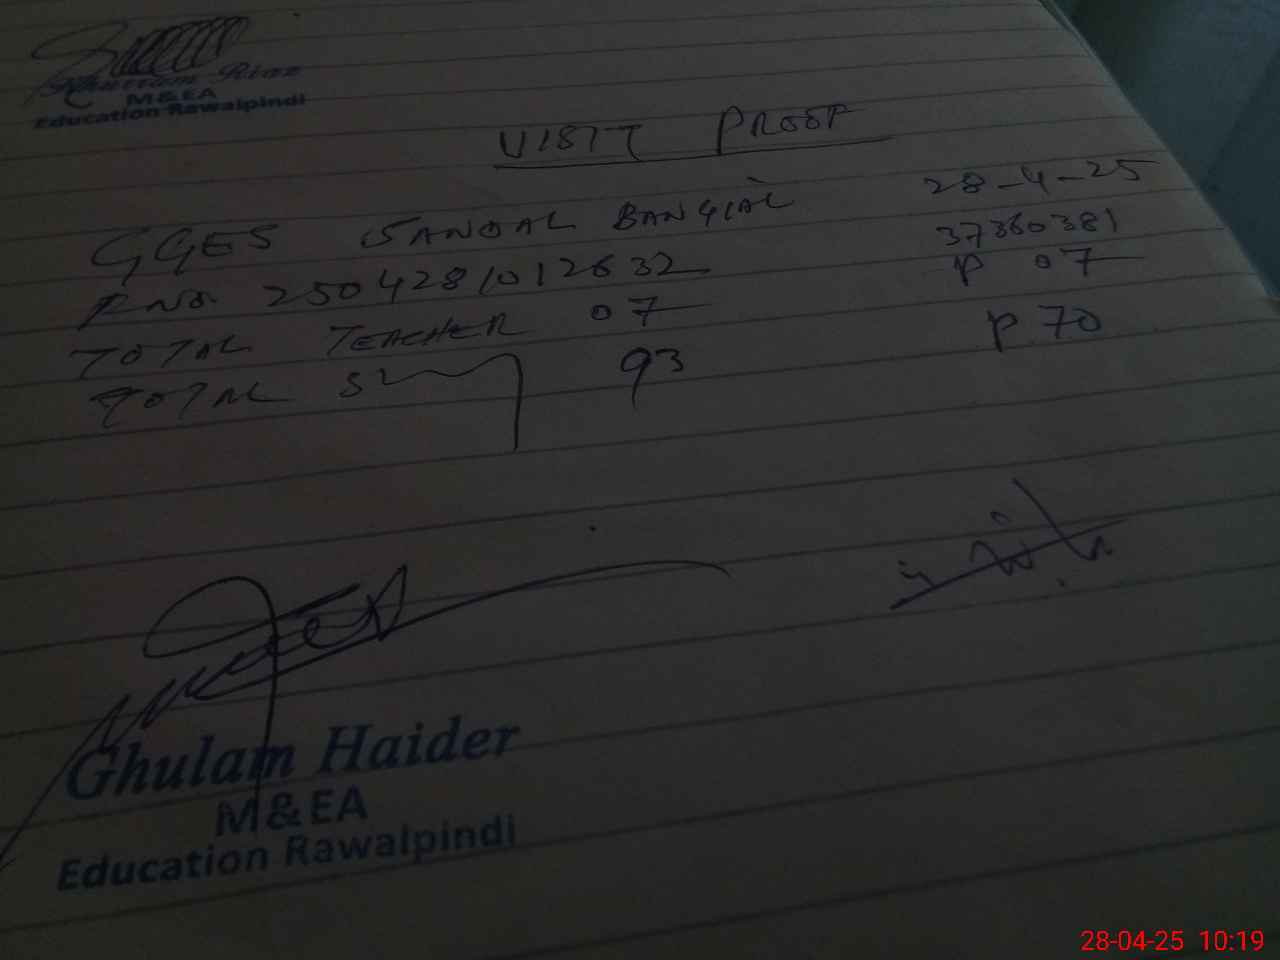 Khurram Riaz
M&EA
Education Rawalpindi
VISIT PROOF
28-4-25
GGES SANDAL BANGIAL 37360381
R NO. 2504281012632 P 07
TOTAL TEACHER 07
TOTAL 93 P 70
Ghulam Haider
M&EA
Education Rawalpindi
28-04-25 10:19